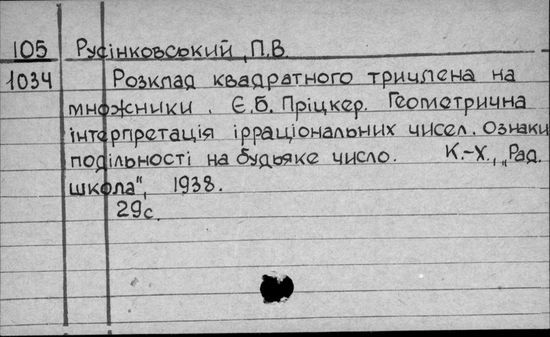 105 Русінковський, П.В.
1034 Розклад квадратного тричлена на
множники. Є.Б. Пріцкер. Геометрична
інтерпретація ірраціональних чисел. Ознаки
подільності на будьяке число. К.-Х., „Рад.
школа", 1938.
29с.